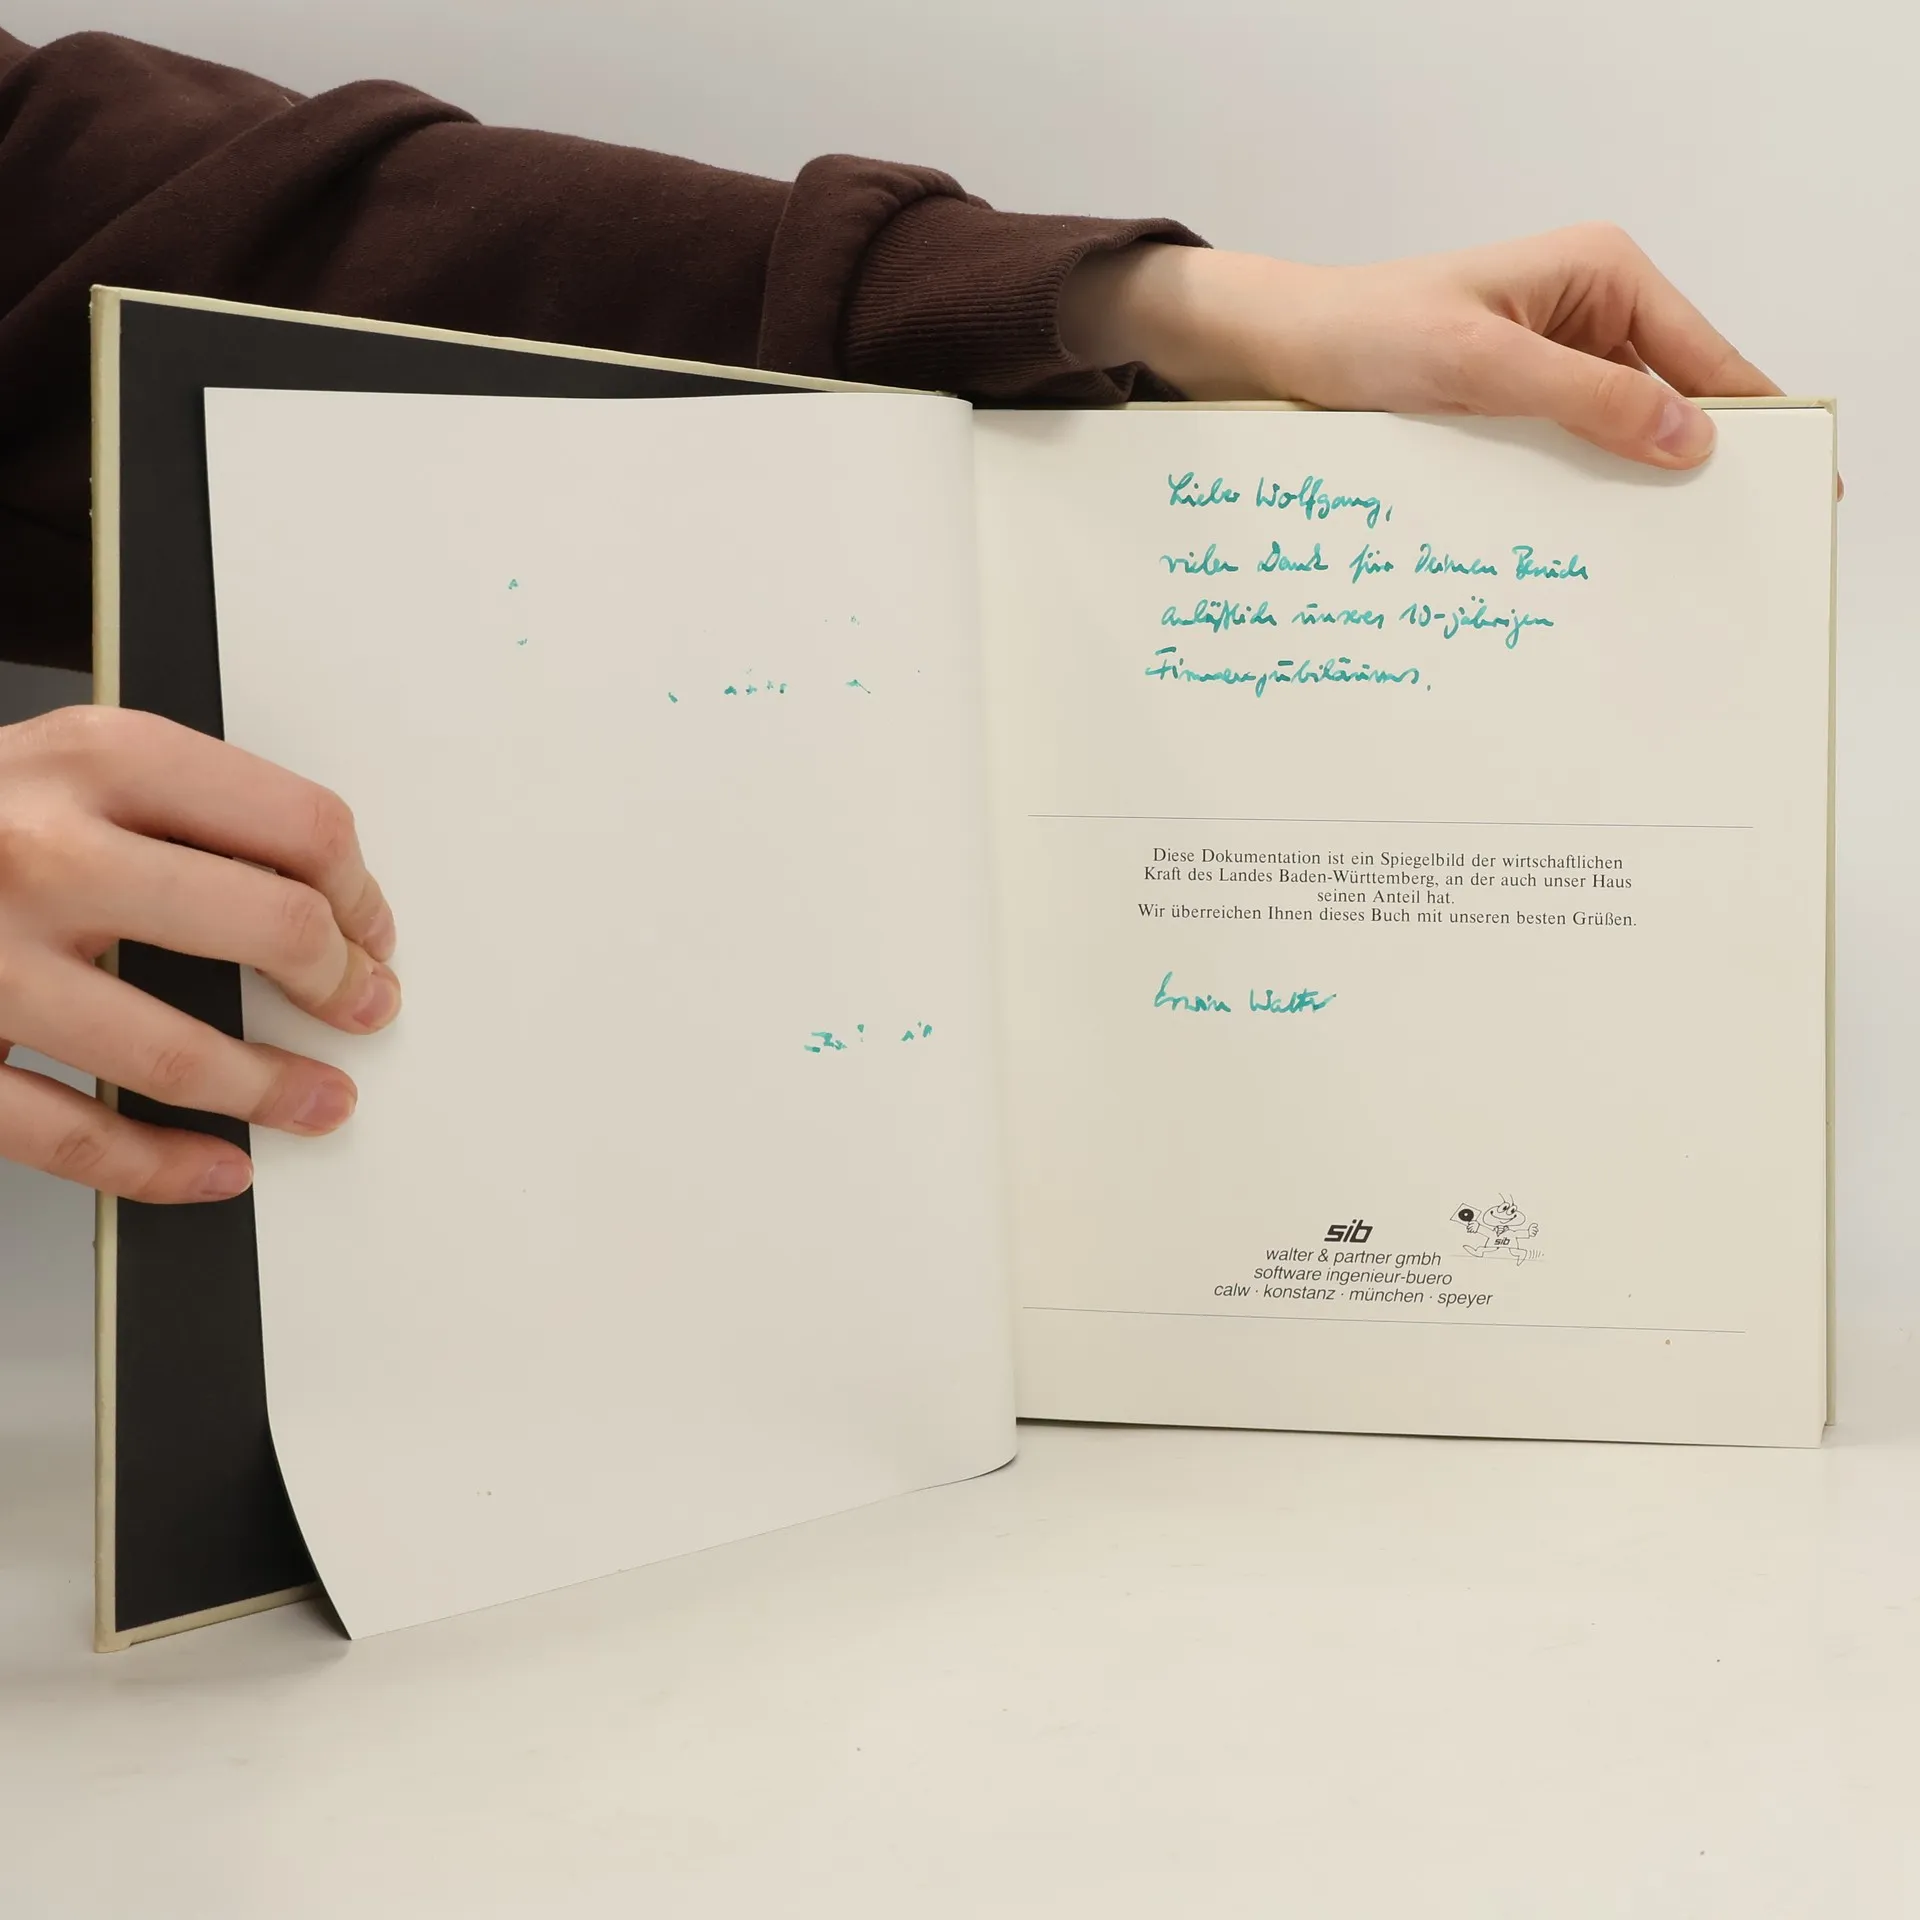 Lieber Wolfgang,
vielen Dank für Deinen Besuch
anläßlich unseres 10-jährigen
Firmenjubiläums.
Diese Dokumentation ist ein Spiegelbild der wirtschaftlichen
Kraft des Landes Baden-Württemberg, an der auch unser Haus
seinen Anteil hat.
Wir überreichen Ihnen dieses Buch mit unseren besten Grüßen.
Erwin Walter
sib
sib
walter & partner gmbh
software ingenieur-buero
calw · konstanz · münchen · speyer